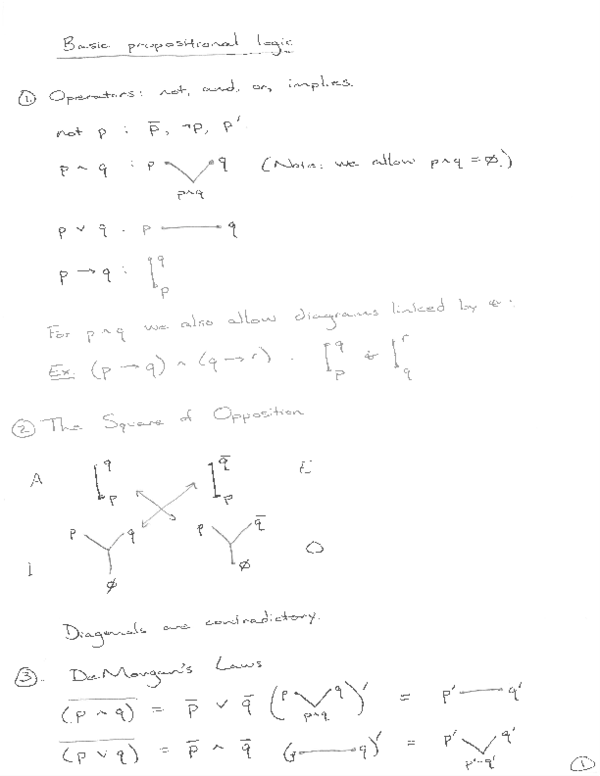 Basic propositional logic
① Operators: not, and, or, implies.
not p : p̅, ¬p, p'
p ∧ q : p q (Note: we allow p∧q = ∅.)
p∧q
p ∨ q : p q
p → q : q
p
For p∧q we also allow diagrams linked by &:
Ex: (p → q) ∧ (q → r) . q & r
p q
② The Square of Opposition
A q q̅ E
p p
I p q p q̅ O
∅ ∅
Diagonals are contradictory.
③. DeMorgan's Laws
(p ∧ q)̅ = p̅ ∨ q̅ (p q)' = p' q'
p∧q
(p ∨ q)̅ = p̅ ∧ q̅ (p q)' = p' q'
p'∧q'
①